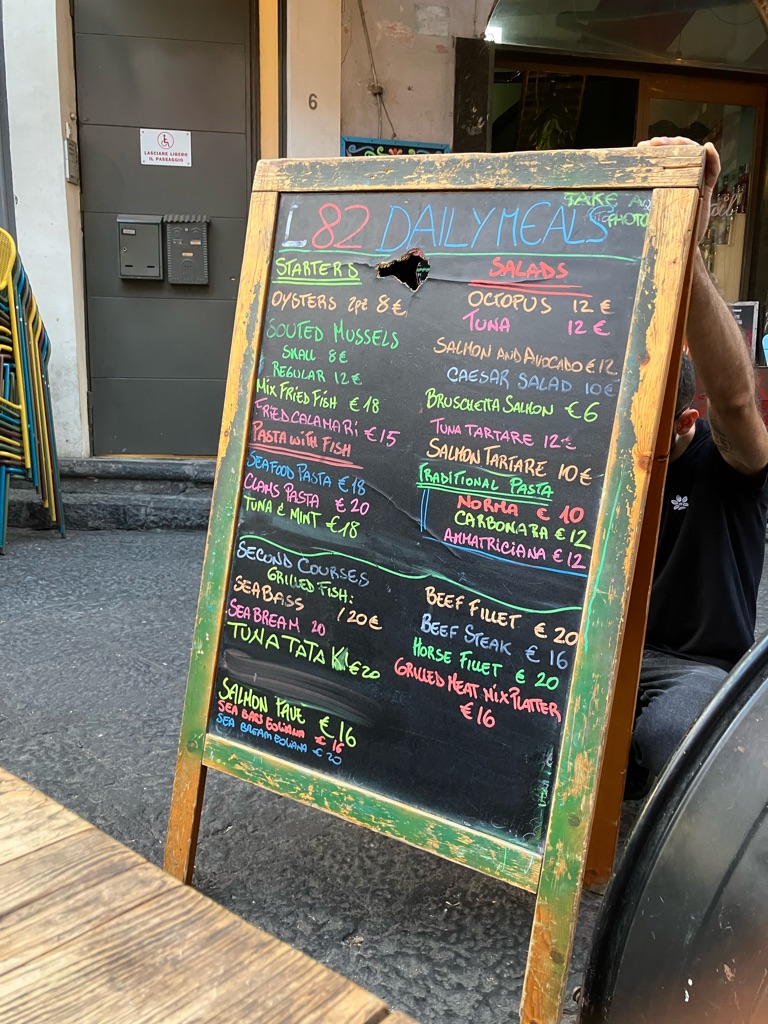 6
LASCIARE LIBERO
IL PASSAGGIO
L 82 DAILY MEALS
TAKE A
PHOTO
STARTERS
OYSTERS 2pz 8 €
SOUTED MUSSELS
SMALL 8€
REGULAR 12 €
MIX FRIED FISH € 18
FRIED CALAMARI € 15
PASTA WITH FISH
SEAFOOD PASTA € 18
CLAMS PASTA € 20
TUNA & MINT €18
SALADS
OCTOPUS 12 €
TUNA 12 €
SALMON AND AVOCADO € 12
CAESAR SALAD 10€
BRUSCHETTA SALMON € 6
TUNA TARTARE 12 €
SALMON TARTARE 10 €
TRADITIONAL PASTA
NORMA € 10
CARBONARA € 12
AMMATRICIANA € 12
SECOND COURSES
GRILLED FISH:
SEA BASS / 20 €
SEA BREAM 20
TUNA TATAKI € 20
SALMON FAUE € 16
SEA BARS EOLIANA € 16
SEA BREAM EOLIANA € 20
BEEF FILLET € 20
BEEF STEAK € 16
HORSE FILLET € 20
GRILLED MEAT MIX PLATTER
€ 16